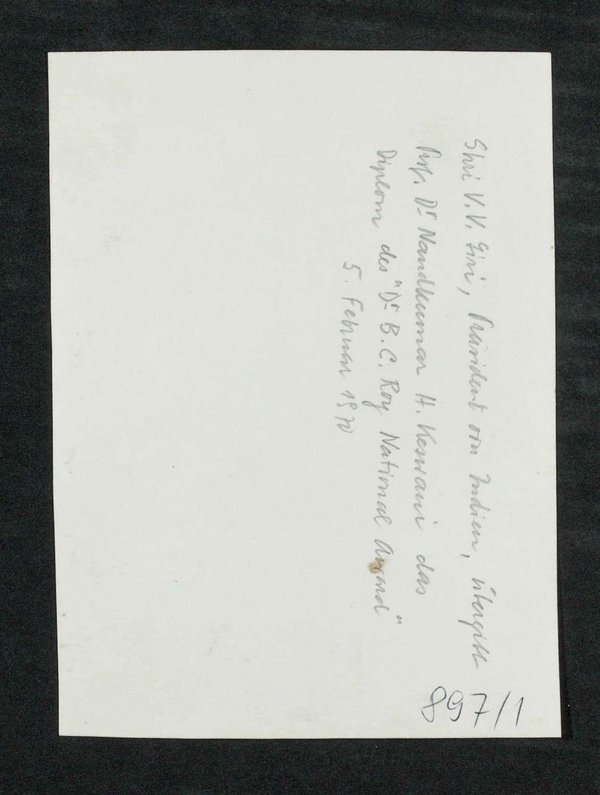 Shri V.V. Giri, Präsident von Indien, übergibt
Prof. Dr Nandkumar H. Keswani das
Diplom des "Dr B.C. Roy National Award"
5. Februar 1970
897/1